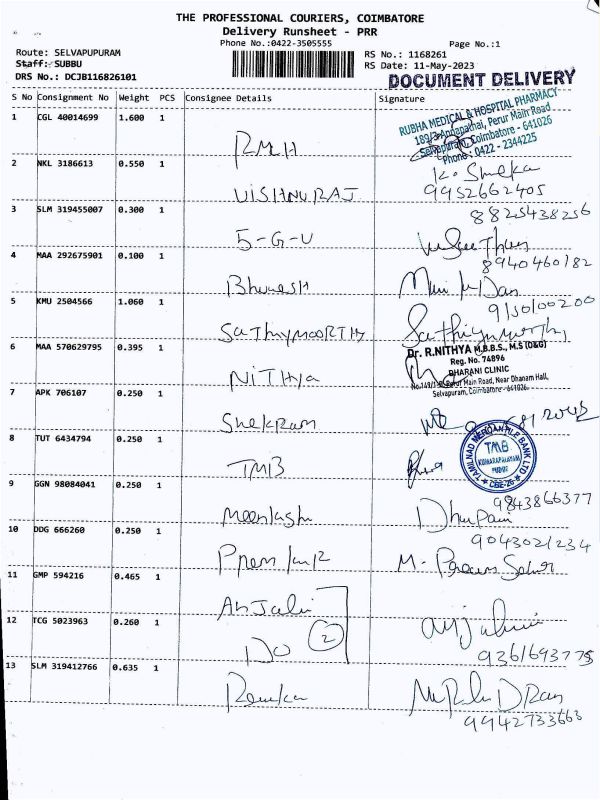 THE PROFESSIONAL COURIERS, COIMBATORE
Delivery Runsheet - PRR
Phone No.:0422-3505555
Page No.:1
Route: SELVAPUPURAM
RS No.: 1168261
Staff: SUBBU
RS Date: 11-May-2023
DRS No.: DCJB116826101
DOCUMENT DELIVERY
S No Consignment No Weight PCS Consignee Details Signature
1 CGL 40014699 1.600 1
RUBHA MEDICAL & HOSPITAL PHARMACY
Perur Main Road
Selvapuram, Coimbatore - 641026
Phone: 0422 - 2344225
RMH
2 NKL 3186613 0.550 1
9952662405
VISHNURAJ
3 SLM 319455007 0.300 1
8825438256
5-G-U
4 MAA 292675901 0.100 1
8940460182
Bhuvnesh
5 KMU 2504566 1.060 1
SaThiyMOORTHY
6 MAA 570629795 0.395 1
Dr. R.NITHYA M.B.B.S., M.S (O&G)
Reg. No. 74896
DHARANI CLINIC
Perur Main Road, Near Dhanam Hall,
Selvapuram, Coimbatore - 641026.
NiTHya
7 APK 706107 0.250 1
Shekram
8 TUT 6434794 0.250 1
TAMILNAD MERCANTILE BANK LTD
TMB
CBE-26
TMB
9 GGN 98084041 0.250 1
9843866377
10 DDG 666260 0.250 1
9043021234
11 GMP 594216 0.465 1
Anjali
12 TCG 5023963 0.260 1
2
Do
9361693775
13 SLM 319412766 0.635 1
Renuka
9942733663